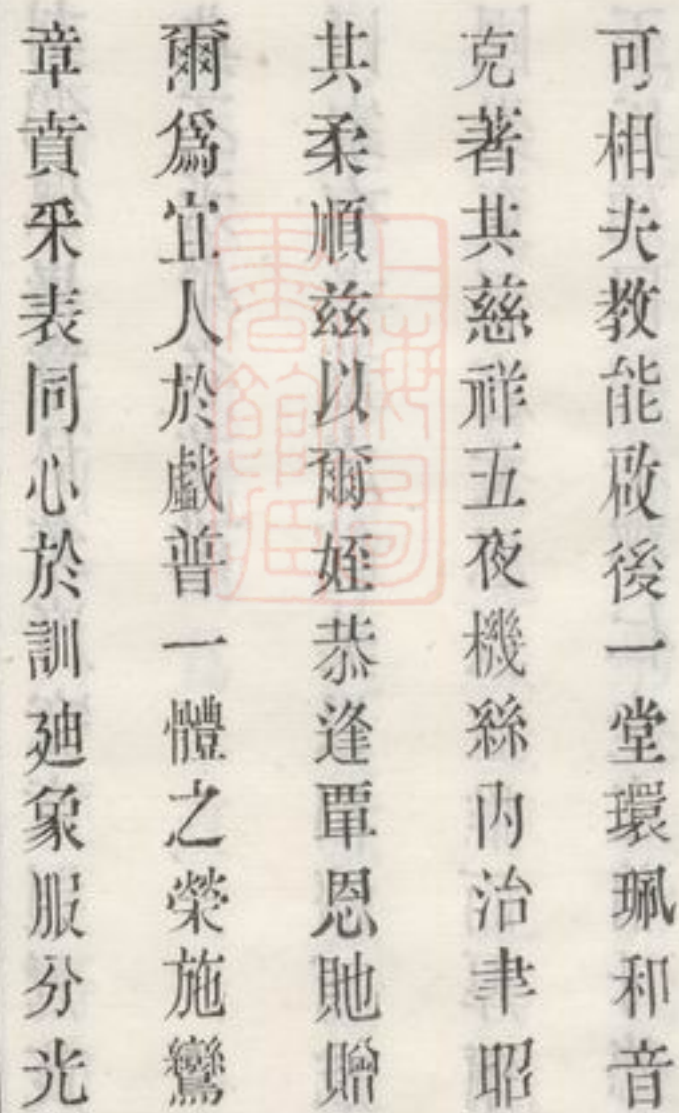 可相夫教能啟後一堂環珮和音
克著其慈祥五夜機絲內治聿昭
其柔順茲以爾姪恭逢覃恩貤贈
爾爲宜人於戲普一體之榮施鸞
章賁釆表同心於訓廸象服分光
上海圖書館藏